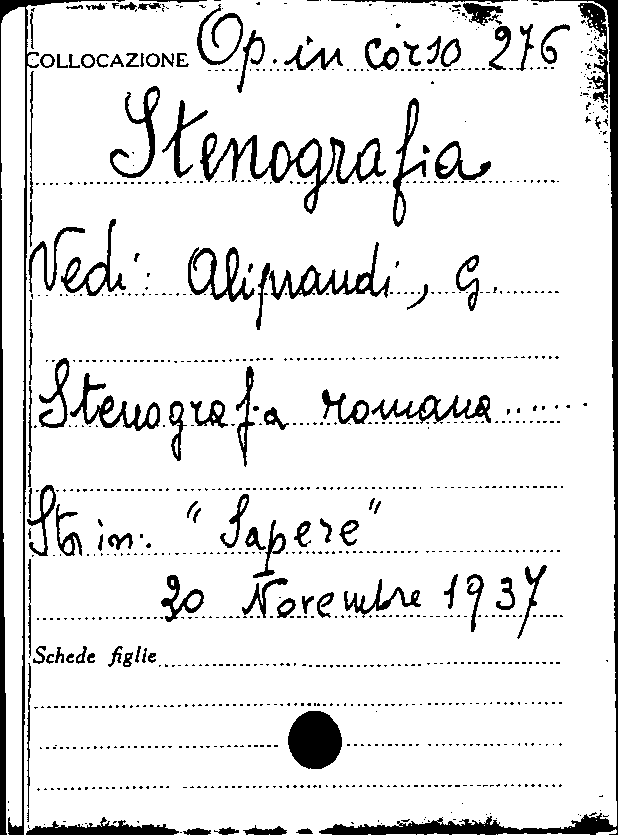 COLLOCAZIONE Op. in corso 276
Stenografia
Vedi: Aliprandi, G.
Stenografia romana.......
Sta in: "Sapere"
30 Novembre 1937
Schede figlie